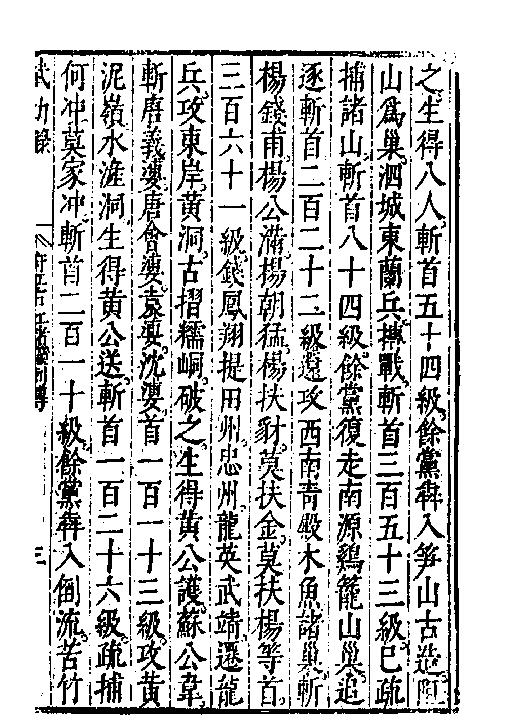 之生得八人斬首五十四級餘黨犇入笋山古造阿
山爲巢泗城東蘭兵摶戰斬首三百五十三級已疏
捕諸山斬首八十四級餘黨復走南源鷄籠山巢追
逐斬首二百二十二級還攻西南青殿木魚諸巢斬
楊錢甫楊公滿楊朝猛楊扶豺莫扶金莫扶楊等首
三百六十一級錢鳳翔提田州忠州龍英武靖遷龍
兵攻東岸黃洞古摺糯峒破之生得黃公護蘇公韋
斬唐義婆唐會婆袁婆沈婆首一百一十三級攻黃
泥嶺水漄洞生得黃公送斬首一百二十六級疏捕
何冲莫家冲斬首二百一十級餘黨犇入倒流苦竹
武功錄
三